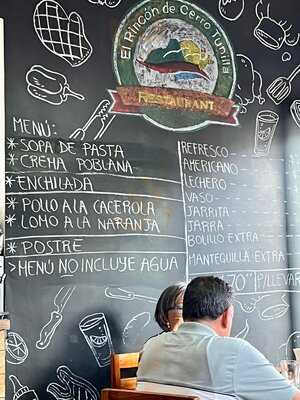 El Rincón de Cerro Tuntilla
RESTAURANT
MENÚ:
*SOPA DE PASTA
*CREMA POBLANA
*ENCHILADA
*POLLO A LA CACEROLA
*LOMO A LA NARANJA
*POSTRE
*MENÚ NO INCLUYE AGUA
REFRESCO
AMERICANO
LECHERO
VASO
JARRITA
JARRA
BOLILLO EXTRA
MANTEQUILLA EXTRA
70°° P/LLEVAR